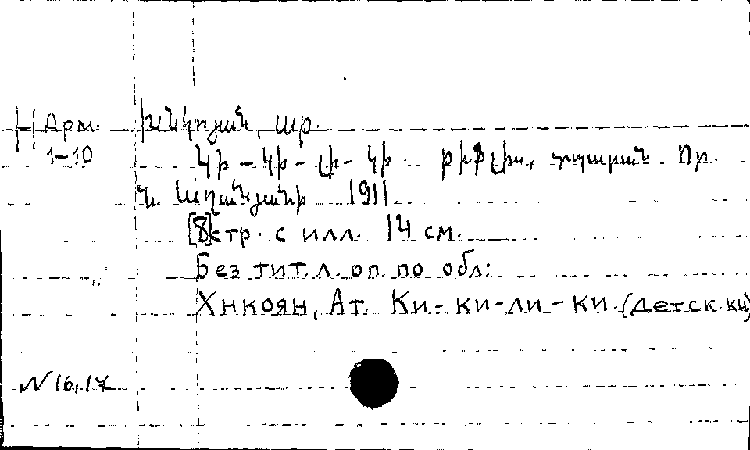 Арм. Խնկոյան, Ատ.
1-10 Կի - կի - լի - կի Թիֆլիս, տպարան Օր.
Ն. Աղանեանի 1911
[8]стр. с илл. 14 см.
Без тит. л. оп. по обл:
Хнкоян, Ат. Ки-ки-ли-ки. (детск. кн)
№ 16,17